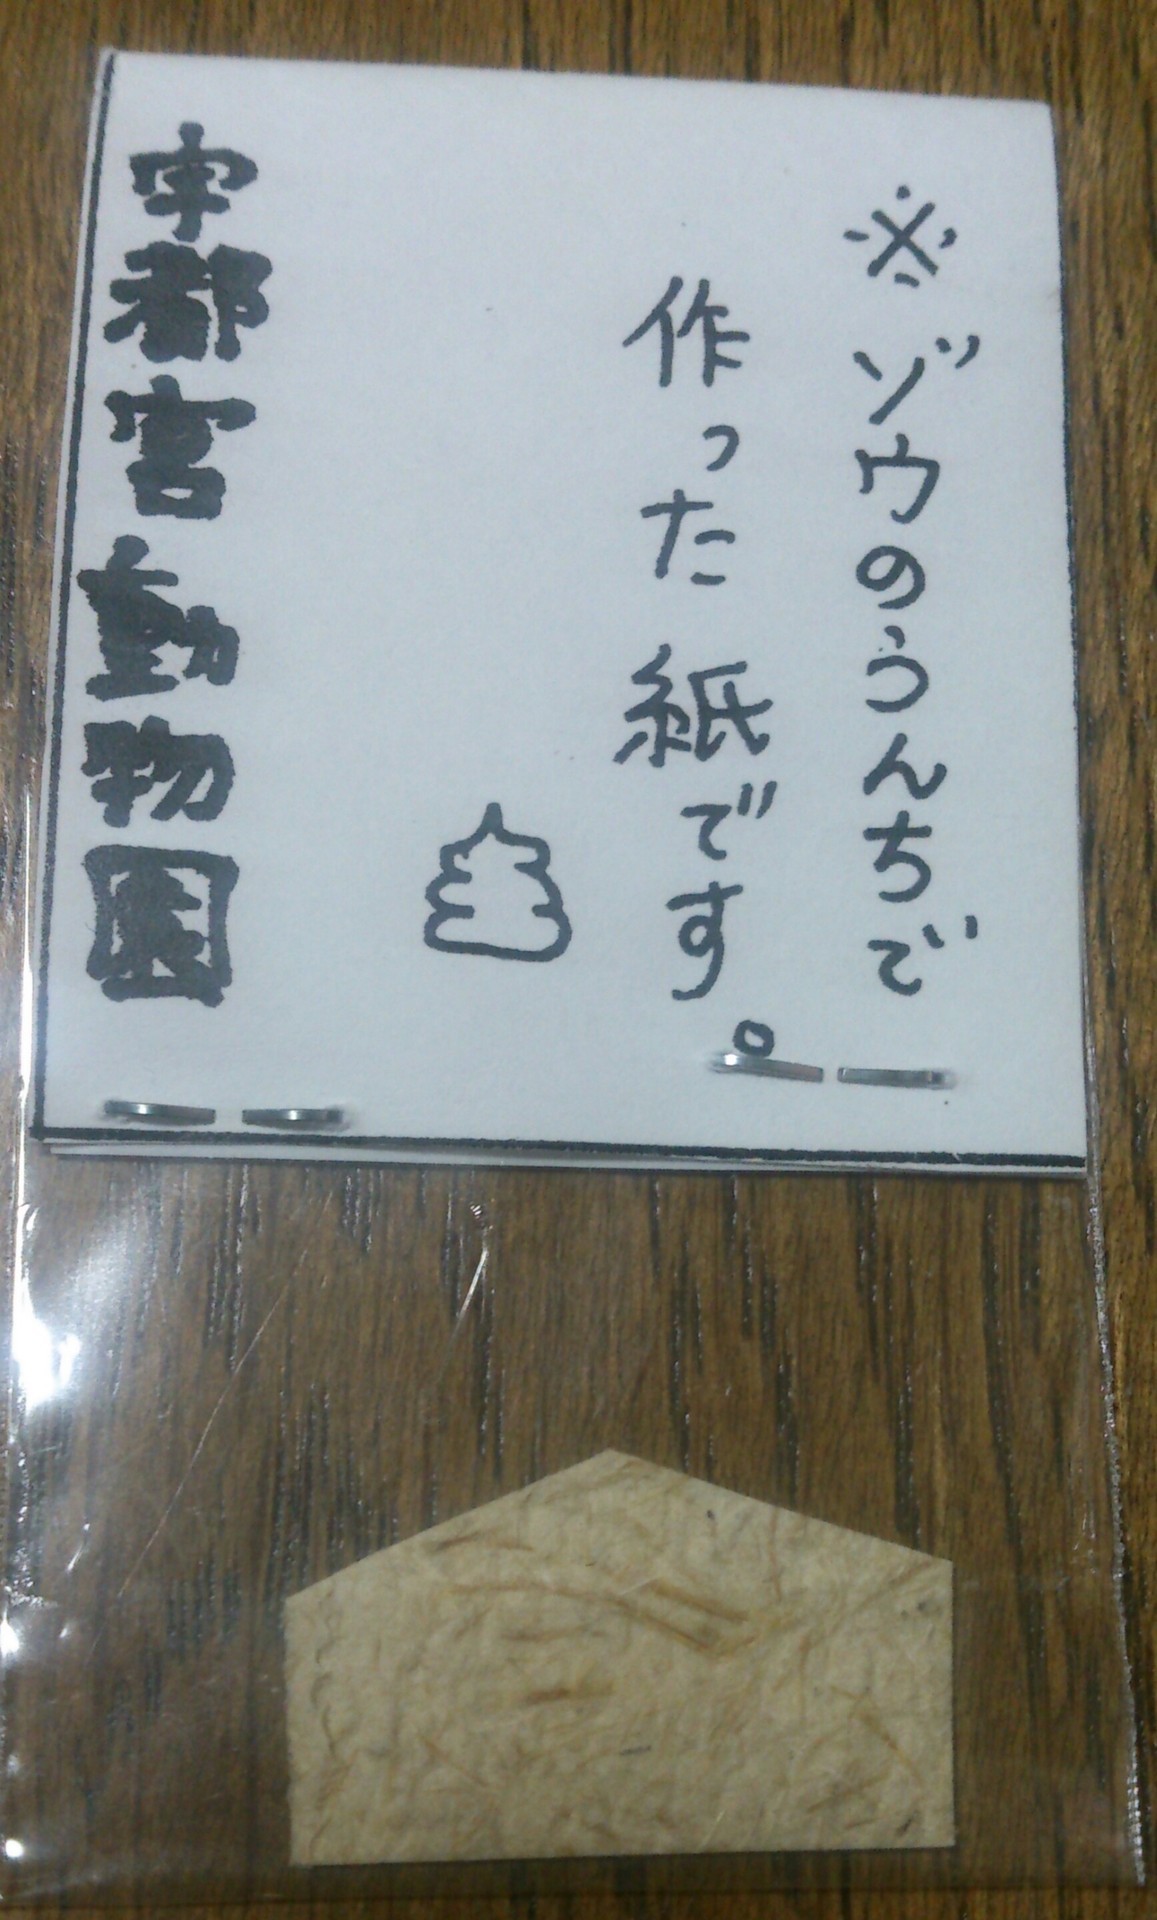 ※ゾウのうんちで
作った紙です。
宇都宮動物園